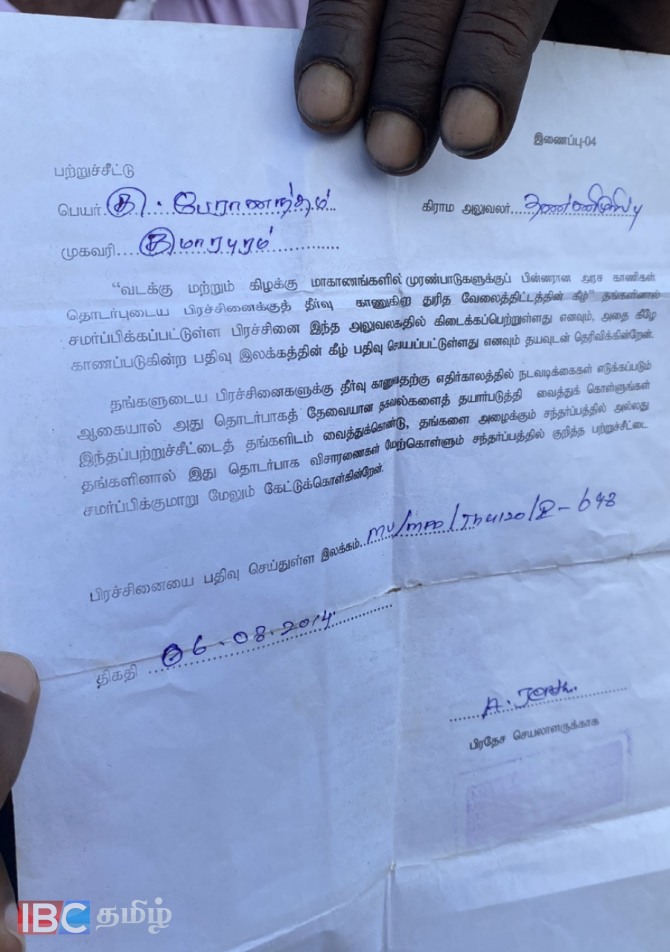 இணைப்பு-04
பற்றுச்சீட்டு
பெயர் தி. பேரானந்தம்
கிராம அலுவலர் தண்ணிமுறிப்பு
முகவரி குமாரபுரம்
"வடக்கு மற்றும் கிழக்கு மாகாணங்களில் முரண்பாடுகளுக்குப் பின்னரான அரச காணிகள்
தொடர்புடைய பிரச்சினைக்குத் தீர்வு காணுகிற துரித வேலைத்திட்டத்தின் கீழ்" தங்களினால்
சமர்ப்பிக்கப்பட்டுள்ள பிரச்சினை இந்த அலுவலகத்தில் கிடைக்கப்பெற்றுள்ளது எனவும், அதை கீழே
காணப்படுகின்ற பதிவு இலக்கத்தின் கீழ் பதிவு செய்யப்பட்டுள்ளது எனவும் தயவுடன் தெரிவிக்கின்றேன்.
தங்களுடைய பிரச்சினைகளுக்கு தீர்வு காணுவதற்கு எதிர்காலத்தில் நடவடிக்கைகள் எடுக்கப்படும்
ஆகையால் அது தொடர்பாகத் தேவையான தகவல்களைத் தயார்படுத்தி வைத்துக் கொள்ளுங்கள்
இந்தப்பற்றுச்சீட்டைத் தங்களிடம் வைத்துக்கொண்டு, தங்களை அழைக்கும் சந்தர்ப்பத்தில் அல்லது
தங்களினால் இது தொடர்பாக விசாரணைகள் மேற்கொள்ளும் சந்தர்ப்பத்தில் குறித்த பற்றுச்சீட்டை
சமர்ப்பிக்குமாறு மேலும் கேட்டுக்கொள்கின்றேன்.
பிரச்சினையை பதிவு செய்துள்ள இலக்கம். MU/MPD/Th4120/R-648
திகதி 06.08.2014
பிரதேச செயலாளருக்காக
IBC தமிழ்